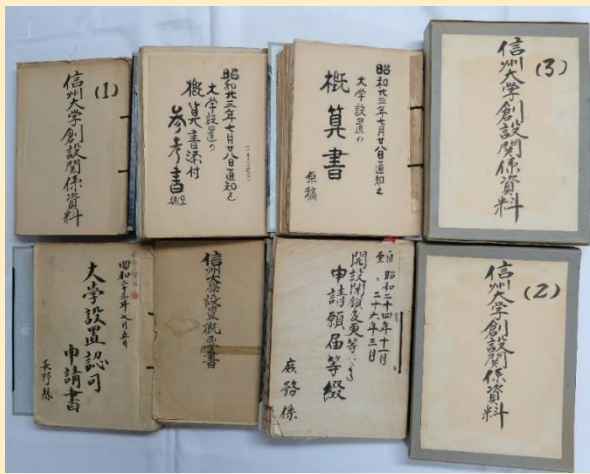 (1)
信州大学創設関係資料
昭和廿三年七月廿八日通知之
大学設置の
概算書添付
参考書
昭和廿三年七月廿八日通知之
大学設置の
概算書
原稿
(3)
信州大学創設関係資料
昭和二十三年七月五日
大学設置認可
申請書
長野縣
信州大学設置概要書
自昭和二十四年十一月
至〃二十六年三月
開設閉鎖変更等
申請願届等綴
庶務係
(2)
信州大学創設関係資料